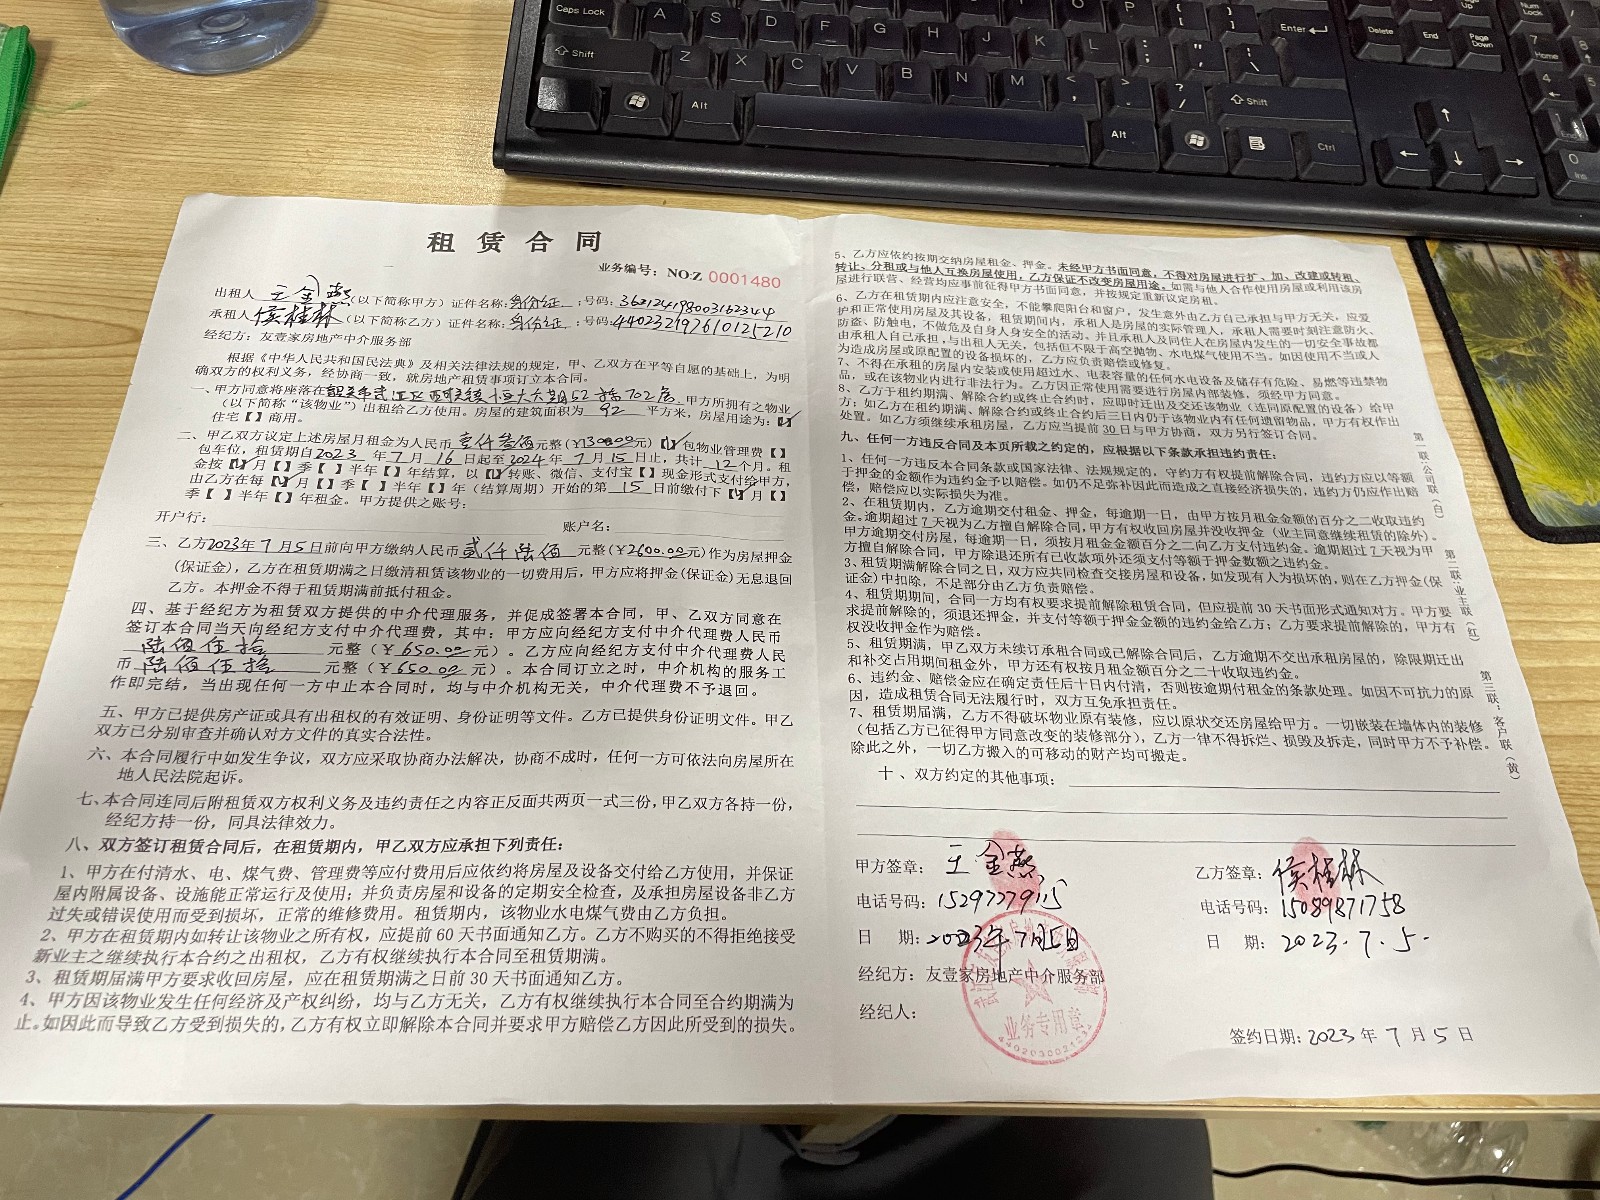 租赁合同
业务编号：NO:Z 0001480
出租人 王金燕（以下简称甲方）证件名称：身份证；号码：362124198003162344
承租人 侯桂林（以下简称乙方）证件名称：身份证；号码：440232197610125210
经纪方：友壹家房地产中介服务部
根据《中华人民共和国民法典》及相关法律法规的规定，甲、乙双方在平等自愿的基础上，为明
确双方的权利义务，经协商一致，就房地产租赁事项订立本合同。
一、甲方同意将座落在韶关市武江区西联镇恒大大朗52栋702房，甲方所拥有之物业
（以下简称“该物业”）出租给乙方使用。房屋的建筑面积为 92 平方米，房屋用途为：【✓】
住宅【 】商用。
二、甲乙双方议定上述房屋月租金为人民币 壹仟叁佰元整（¥1300.00元）【✓】包物业管理费【 】
包车位，租赁期自2023年7月16日起至2024年7月15日止，共计 12 个月。租
金按【✓】月【 】季【 】半年【 】年结算，以【✓】转账、微信、支付宝【 】现金形式支付给甲方，
由乙方在每【✓】月【 】季【 】半年【 】年（结算周期）开始的第 15 日前缴付下【✓】月【 】
季【 】半年【 】年租金。甲方提供之账号：
开户行： 账户名：
三、乙方2023年7月5日前向甲方缴纳人民币 贰仟陆佰 元整（¥2600.00元）作为房屋押金
（保证金），乙方在租赁期满之日缴清租赁该物业的一切费用后，甲方应将押金（保证金）无息退回
乙方。本押金不得于租赁期满前抵付租金。
四、基于经纪方为租赁双方提供的中介代理服务，并促成签署本合同，甲、乙双方同意在
签订本合同当天向经纪方支付中介代理费，其中：甲方应向经纪方支付中介代理费人民币
陆佰伍拾 元整（¥650.00元）。乙方应向经纪方支付中介代理费人民
币 陆佰伍拾 元整（¥650.00元）。本合同订立之时，中介机构的服务工
作即完结，当出现任何一方中止本合同时，均与中介机构无关，中介代理费不予退回。
五、甲方已提供房产证或具有出租权的有效证明、身份证明等文件。乙方已提供身份证明文件。甲乙
双方已分别审查并确认对方文件的真实合法性。
六、本合同履行中如发生争议，双方应采取协商办法解决，协商不成时，任何一方可依法向房屋所在
地人民法院起诉。
七、本合同连同后附租赁双方权利义务及违约责任之内容正反面共两页一式三份，甲乙双方各持一份，
经纪方持一份，同具法律效力。
八、双方签订租赁合同后，在租赁期内，甲乙双方应承担下列责任：
1、甲方在付清水、电、煤气费、管理费等应付费用后应依约将房屋及设备交付给乙方使用，并保证
屋内附属设备、设施能正常运行及使用；并负责房屋和设备的定期安全检查，及承担房屋设备非乙方
过失或错误使用而受到损坏，正常的维修费用。租赁期内，该物业水电煤气费由乙方负担。
2、甲方在租赁期内如转让该物业之所有权，应提前60天书面通知乙方。乙方不购买的不得拒绝接受
新业主之继续执行本合约之出租权，乙方有权继续执行本合同至租赁期满。
3、租赁期届满甲方要求收回房屋，应在租赁期满之日前30天书面通知乙方。
4、甲方因该物业发生任何经济及产权纠纷，均与乙方无关，乙方有权继续执行本合同至合约期满为
止。如因此而导致乙方受到损失的，乙方有权立即解除本合同并要求甲方赔偿乙方因此所受到的损失。
5、乙方应依约按期交纳房屋租金、押金。未经甲方书面同意，不得对房屋进行扩、加、改建或转租、
转让、分租或与他人互换房屋使用，乙方保证不改变房屋用途。如需与他人合作使用房屋或利用该房
屋进行联营、经营均应事前征得甲方书面同意，并按规定重新议定房租。
6、乙方在租赁期内应注意安全，不能攀爬阳台和窗户，发生意外由乙方自己承担与甲方无关，应爱
护和正常使用房屋及其设备，租赁期间内，承租人是房屋的实际管理人，承租人需要时刻注意防火、
防盗、防触电，不做危及自身人身安全的活动。并且承租人及同住人在房屋内发生的一切安全事故都
由承租人自己承担，与出租人无关，包括但不限于高空抛物、水电煤气使用不当。如因使用不当或人
为造成房屋或原配置的设备损坏的，乙方应负责赔偿或修复。
7、不得在承租的房屋内安装或使用超过水、电表容量的任何水电设备及储存有危险、易燃等违禁物
品，或在该物业内进行非法行为。乙方因正常使用需要进行房屋内部装修，须经甲方同意。
8、乙方于租约期满、解除合约或终止合约时，应即时迁出及交还该物业（连同原配置的设备）给甲
方；如乙方在租约期满、解除合约或终止合约后三日内仍于该物业内有任何遗留物品，甲方有权作出
处置。如乙方须继续承租房屋，乙方应当提前30日与甲方协商，双方另行签订合同。
九、任何一方违反合同及本页所载之约定的，应根据以下条款承担违约责任：
1、任何一方违反本合同条款或国家法律、法规规定的，守约方有权提前解除合同，违约方应以等额
于押金的金额作为违约金予以赔偿。如仍不足弥补因此而造成之直接经济损失的，违约方仍应作出赔
偿，赔偿应以实际损失为准。
2、在租赁期内，乙方逾期交付租金、押金，每逾期一日，由甲方按月租金金额的百分之二收取违约
金。逾期超过7天视为乙方擅自解除合同，甲方有权收回房屋并没收押金（业主同意继续租赁的除外）。
甲方逾期交付房屋，每逾期一日，须按月租金金额百分之二向乙方支付违约金。逾期超过7天视为甲
方擅自解除合同，甲方除退还所有已收款项外还须支付等额于押金数额之违约金。
3、租赁期满解除合同之日，双方应共同检查交接房屋和设备，如发现有人为损坏的，则在乙方押金（保
证金）中扣除，不足部分由乙方负责赔偿。
4、租赁期期间，合同一方均有权要求提前解除租赁合同，但应提前30天书面形式通知对方。甲方要
求提前解除的，须退还押金，并支付等额于押金金额的违约金给乙方；乙方要求提前解除的，甲方有
权没收押金作为赔偿。
5、租赁期满，甲乙双方未续订承租合同或已解除合同后，乙方逾期不交出承租房屋的，除限期迁出
和补交占用期间租金外，甲方还有权按月租金额百分之二十收取违约金。
6、违约金、赔偿金应在确定责任后十日内付清，否则按逾期付租金的条款处理。如因不可抗力的原
因，造成租赁合同无法履行时，双方互免承担责任。
7、租赁期届满，乙方不得破坏物业原有装修，应以原状交还房屋给甲方。一切嵌装在墙体内的装修
（包括乙方已征得甲方同意改变的装修部分），乙方一律不得拆烂、损毁及拆走，同时甲方不予补偿。
除此之外，一切乙方搬入的可移动的财产均可搬走。
十、双方约定的其他事项：
甲方签章：王金燕
电话号码：15297779115
日 期：2023年7月5日
经纪方：友壹家房地产中介服务部
经纪人：
乙方签章：侯桂林
电话号码：15089871758
日 期：2023.7.5.
签约日期：2023年7月5日
业务专用章
第一联：公司联（白）
第二联：业主联（红）
第三联：客户联（黄）
Caps Lock A S D F G H J K L Enter
Shift Z X C V B N M Shift
Alt Alt Ctrl
Delete End Page Down
Num Lock
7 Home
4
0 Ins